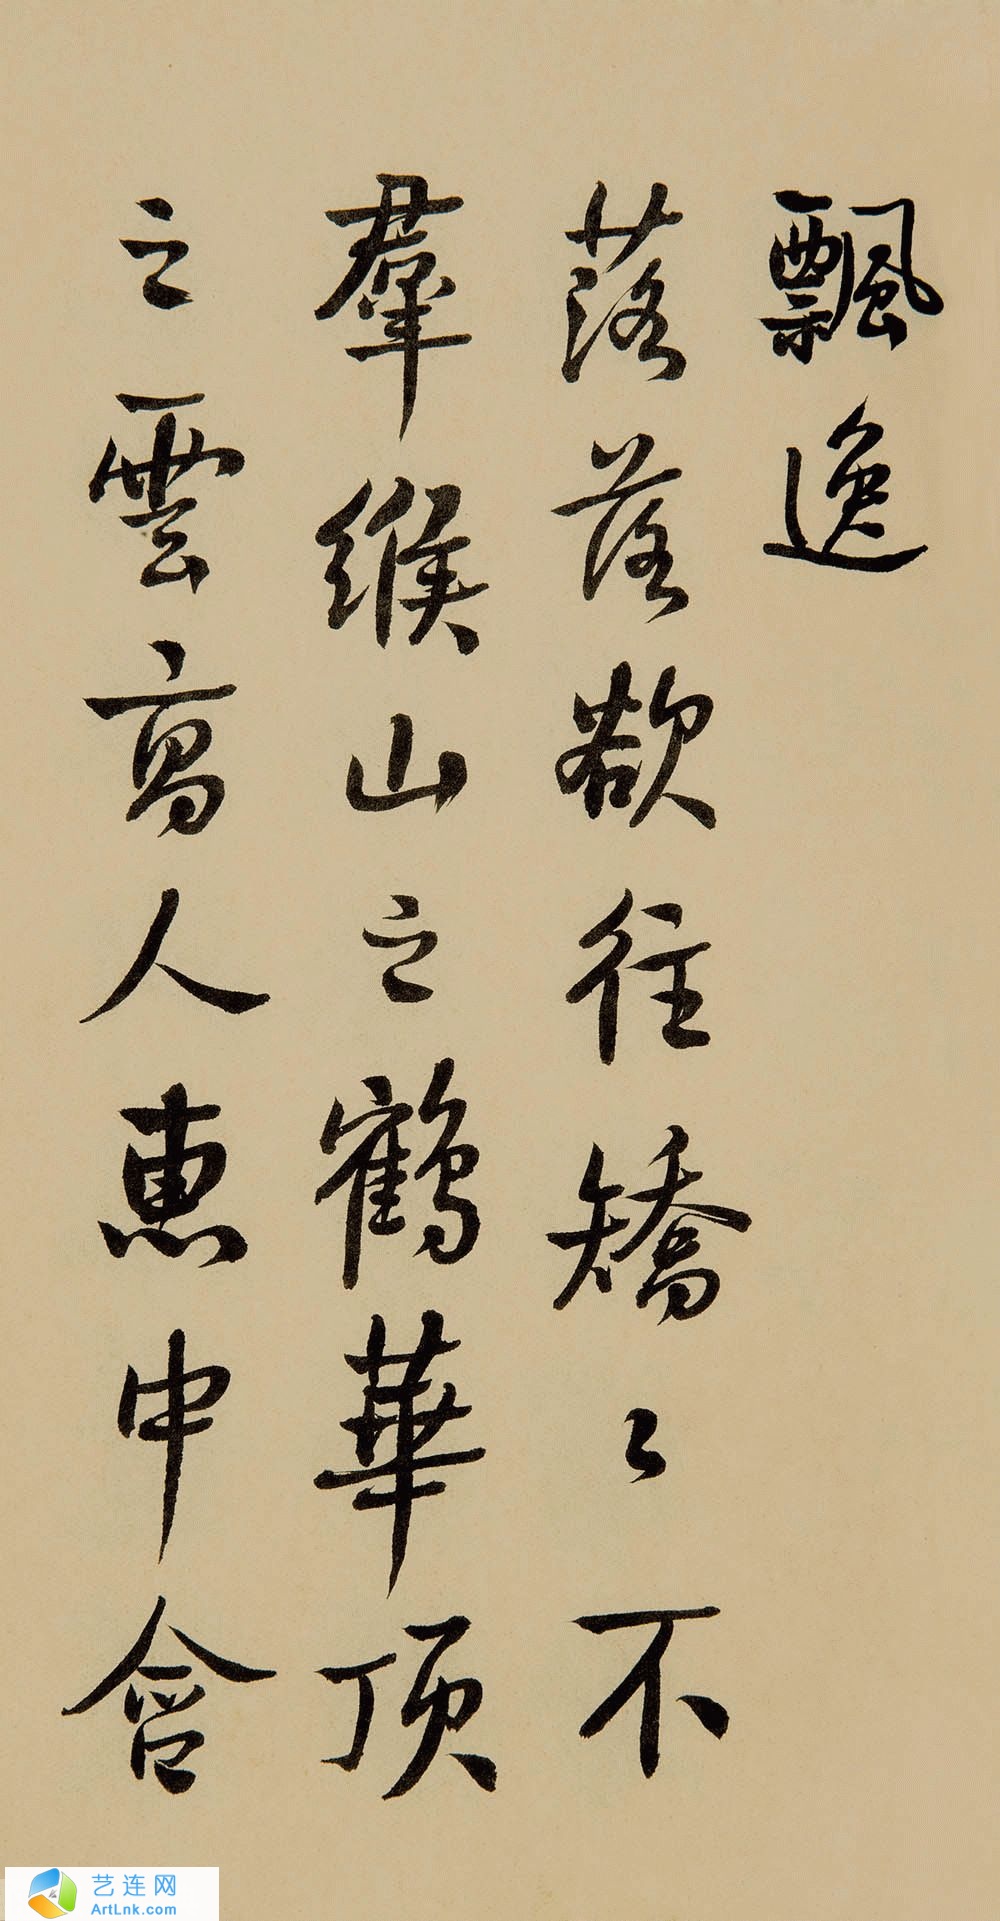 飄逸
落落欲往矯〻不
羣緱山之鶴華頂
之雲高人惠中令
艺连网
ArtLnk.com